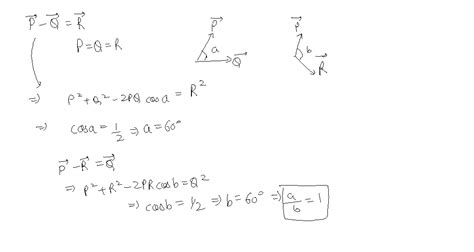 P⃗ - Q⃗ = R⃗
P = Q = R
P⃗
a
Q⃗
P⃗
b
R⃗
⇒ P² + Q² - 2PQ cos a = R²
⇒ cos a = 1/2 ⇒ a = 60°
P⃗ - R⃗ = Q⃗
⇒ P² + R² - 2PR cos b = Q²
⇒ cos b = 1/2 ⇒ b = 60° ⇒ a/b = 1